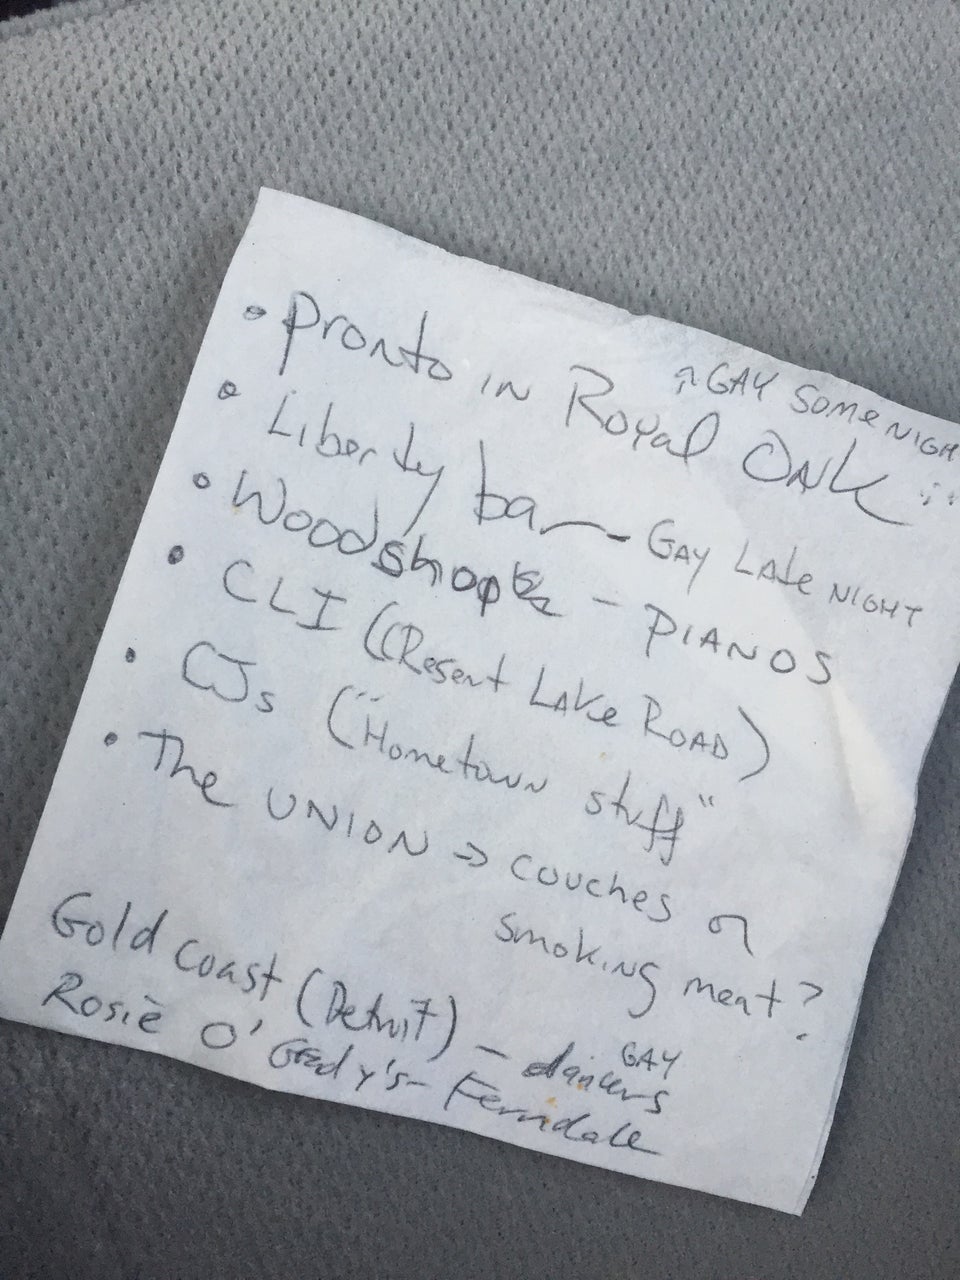 ↗ GAY SOME NIGH
• Pronto in Royal Oak
• Liberty bar - GAY LAte NIGHT
• Woodshop - PIANOS
• CLI ((Resent LAke ROAD)
• CJs ("Hometown stuff"
• The UNION → couches or
smoking meat?
Gold Coast (Detroit) - GAY dancers
Rosie O'Grady's - Ferndale